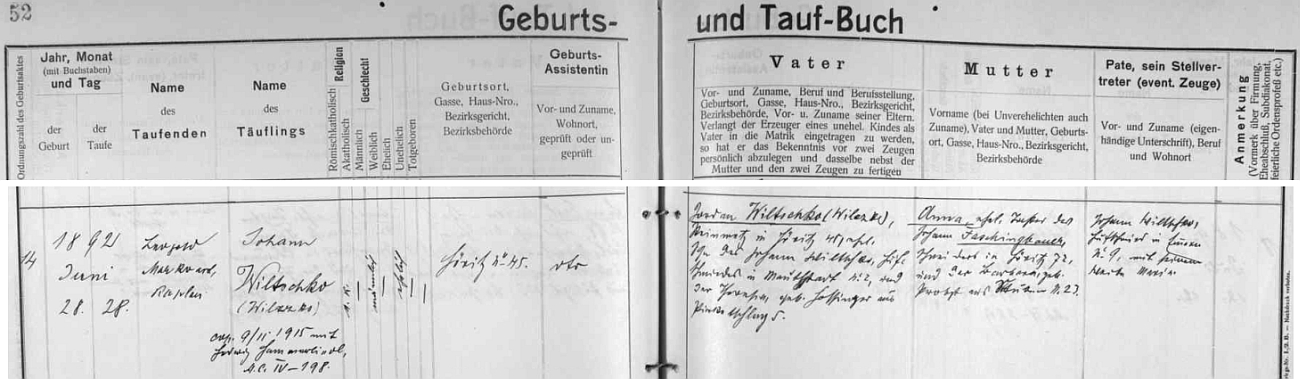 52
Geburts-
und Tauf-Buch
Ordnungszahl des Geburtsaktes
Jahr, Monat
(mit Buchstaben)
und Tag
der
Geburt
der
Taufe
Name
des
Taufenden
Name
des
Täuflings
Religion
Römischkatholisch
Akatholisch
Geschlecht
Männlich
Weiblich
Ehelich
Unehelich
Totgeboren
Geburtsort,
Gasse, Haus-Nro.,
Bezirksgericht,
Bezirksbehörde
Geburts-
Assistentin
Vor- und Zuname,
Wohnort,
geprüft oder un-
geprüft
Vater
Vor- und Zuname, Beruf und Berufsstellung,
Geburtsort, Gasse, Haus-Nro., Bezirksgericht,
Bezirksbehörde, Vor- u. Zuname seiner Eltern.
Verlangt der Erzeuger eines unehel. Kindes als
Vater in die Matrik eingetragen zu werden,
so hat er das Bekenntnis vor zwei Zeugen
persönlich abzulegen und dasselbe nebst der
Mutter und den zwei Zeugen zu fertigen
Mutter
Vorname (bei Unverehelichten auch
Zuname), Vater und Mutter, Geburts-
ort, Gasse, Haus-Nro., Bezirksgericht,
Bezirksbehörde
Pate, sein Stellver-
treter (event. Zeuge)
Vor- und Zuname (eigen-
händige Unterschrift), Beruf
und Wohnort
Anmerkung
(Vormerk über Firmung,
Eheabschluß, Subdiakonat,
feierliche Ordensprofeß etc.)
14
1892
Juni
28. 28.
Leopold
Markward,
Kaplan
Johann
Wiltschko
(Wilczko)
cop. 9/II 1915 mit
Hedwig
A.C. IV-198.
r. k.
männlich
ehelich
Höritz Nr 45.
Jordan Wiltschko (Wilczko),
in Höritz 45, ehel.
Sohn des Johann Wiltschko,
in Nr. 2, und
der Theresia, geb. aus
5.
Anna, ehel. Tochter des
Johann Faschingbauer,
in Höritz 72,
und der Barbara geb.
aus N. 23.
Johann Wiltschko,
in
Nr 9, mit seinem
Weibe Maria